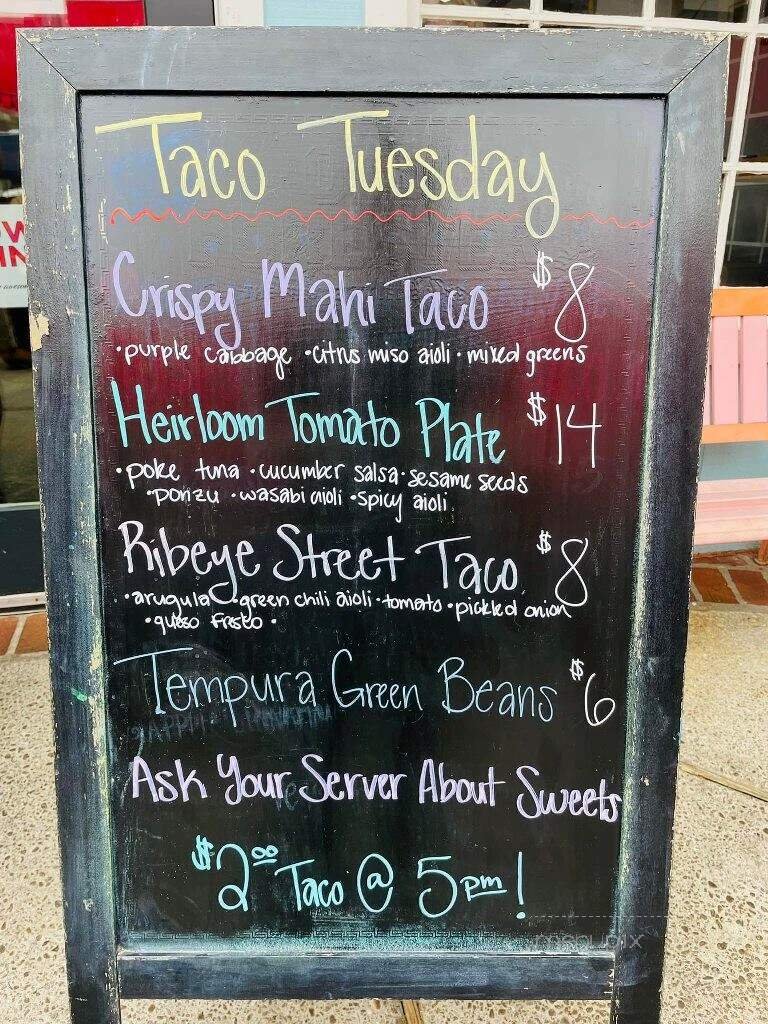 Taco Tuesday
Crispy Mahi Taco $8
•purple cabbage •citrus miso aioli • mixed greens
Heirloom Tomato Plate $14
•poke tuna •cucumber salsa •sesame seeds
•ponzu •wasabi aioli •spicy aioli
Ribeye Street Taco $8
•arugula •green chili aioli •tomato •pickled onion
•queso fresco •
Tempura Green Beans $6
Ask Your Server About Sweets
$2.00 Taco @ 5pm!